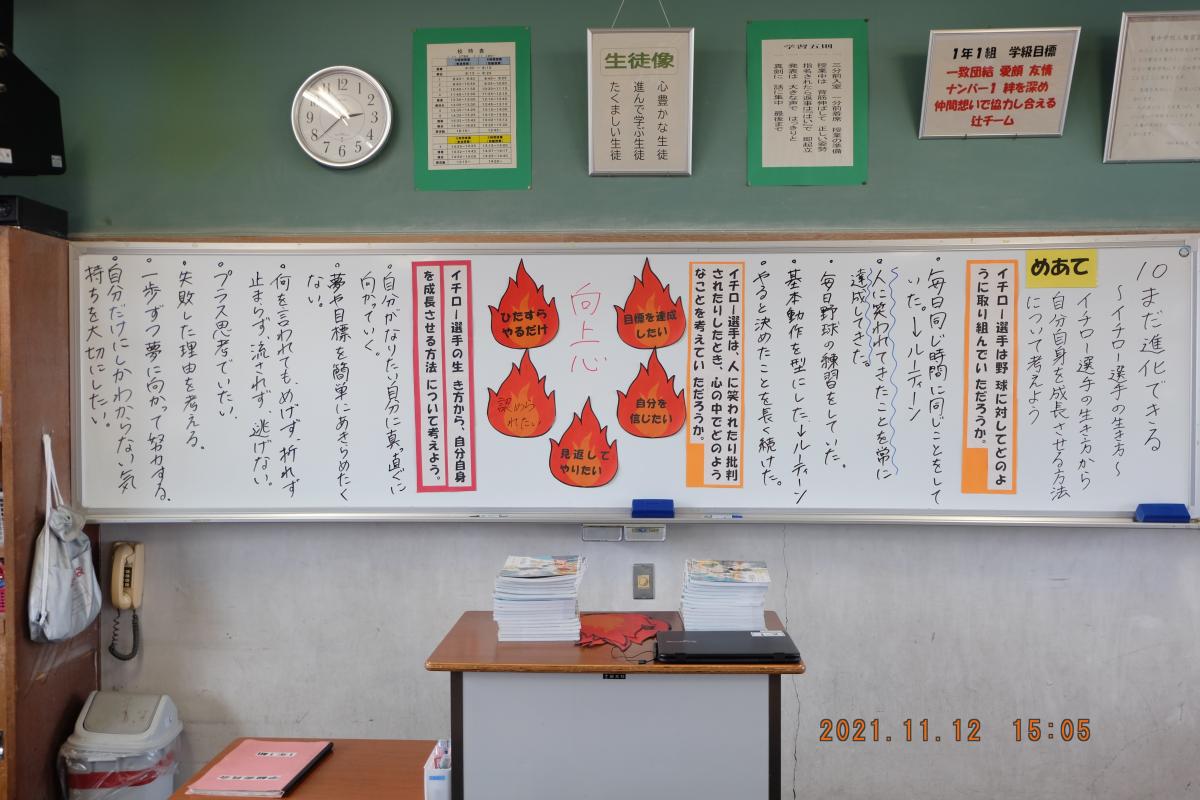 生徒像
心豊かな生徒
進んで学ぶ生徒
たくましい生徒
学習五則
二分前入室 一分前着席 授業の準備
授業中は 背筋伸ばして 正しい姿勢
指名されたら返事は「はい」で 即起立
発表は 大きな声で はっきりと
真剣に 話に集中 最後まで
1年1組 学級目標
一致団結 愛顔 友情
ナンバー1 絆を深め
仲間想いで協力し合える
辻チーム
12
1
2
3
4
5
6
7
8
9
10
11
10 まだ進化できる
～イチロー選手の生き方～
めあて
イチロー選手の生き方から
自分自身を成長させる方法
について考えよう
イチロー選手は野球に対してどのよ
うに取り組んでいただろうか。
・毎日同じ時間に同じことをして
いた。→ルーティーン
・人に笑われてきたことを常に
達成してきた。
・毎日野球の練習をしていた。
・基本動作を型にした→ルーティーン
・やると決めたことを長く続けた。
イチロー選手は、人に笑われたり批判
されたりしたとき、心の中でどのよう
なことを考えていただろうか。
目標を達成
したい
自分を
信じたい
見返して
やりたい
向上心
ひたすら
やるだけ
認めら
れたい
イチロー選手の生き方から、自分自身
を成長させる方法について考えよう。
・自分がなりたい自分に真っ直ぐに
向かっていく。
・夢や目標を簡単にあきらめたく
ない。
・何を言われても、めげず、折れず
止まらず、流されず、逃げない。
・プラス思考でいたい、
・失敗した理由を考える、
・一歩ずつ夢に向かって努力する、
・自分だけにしかわからない気
持ちを大切にしたい。
2021.11.12 15:05